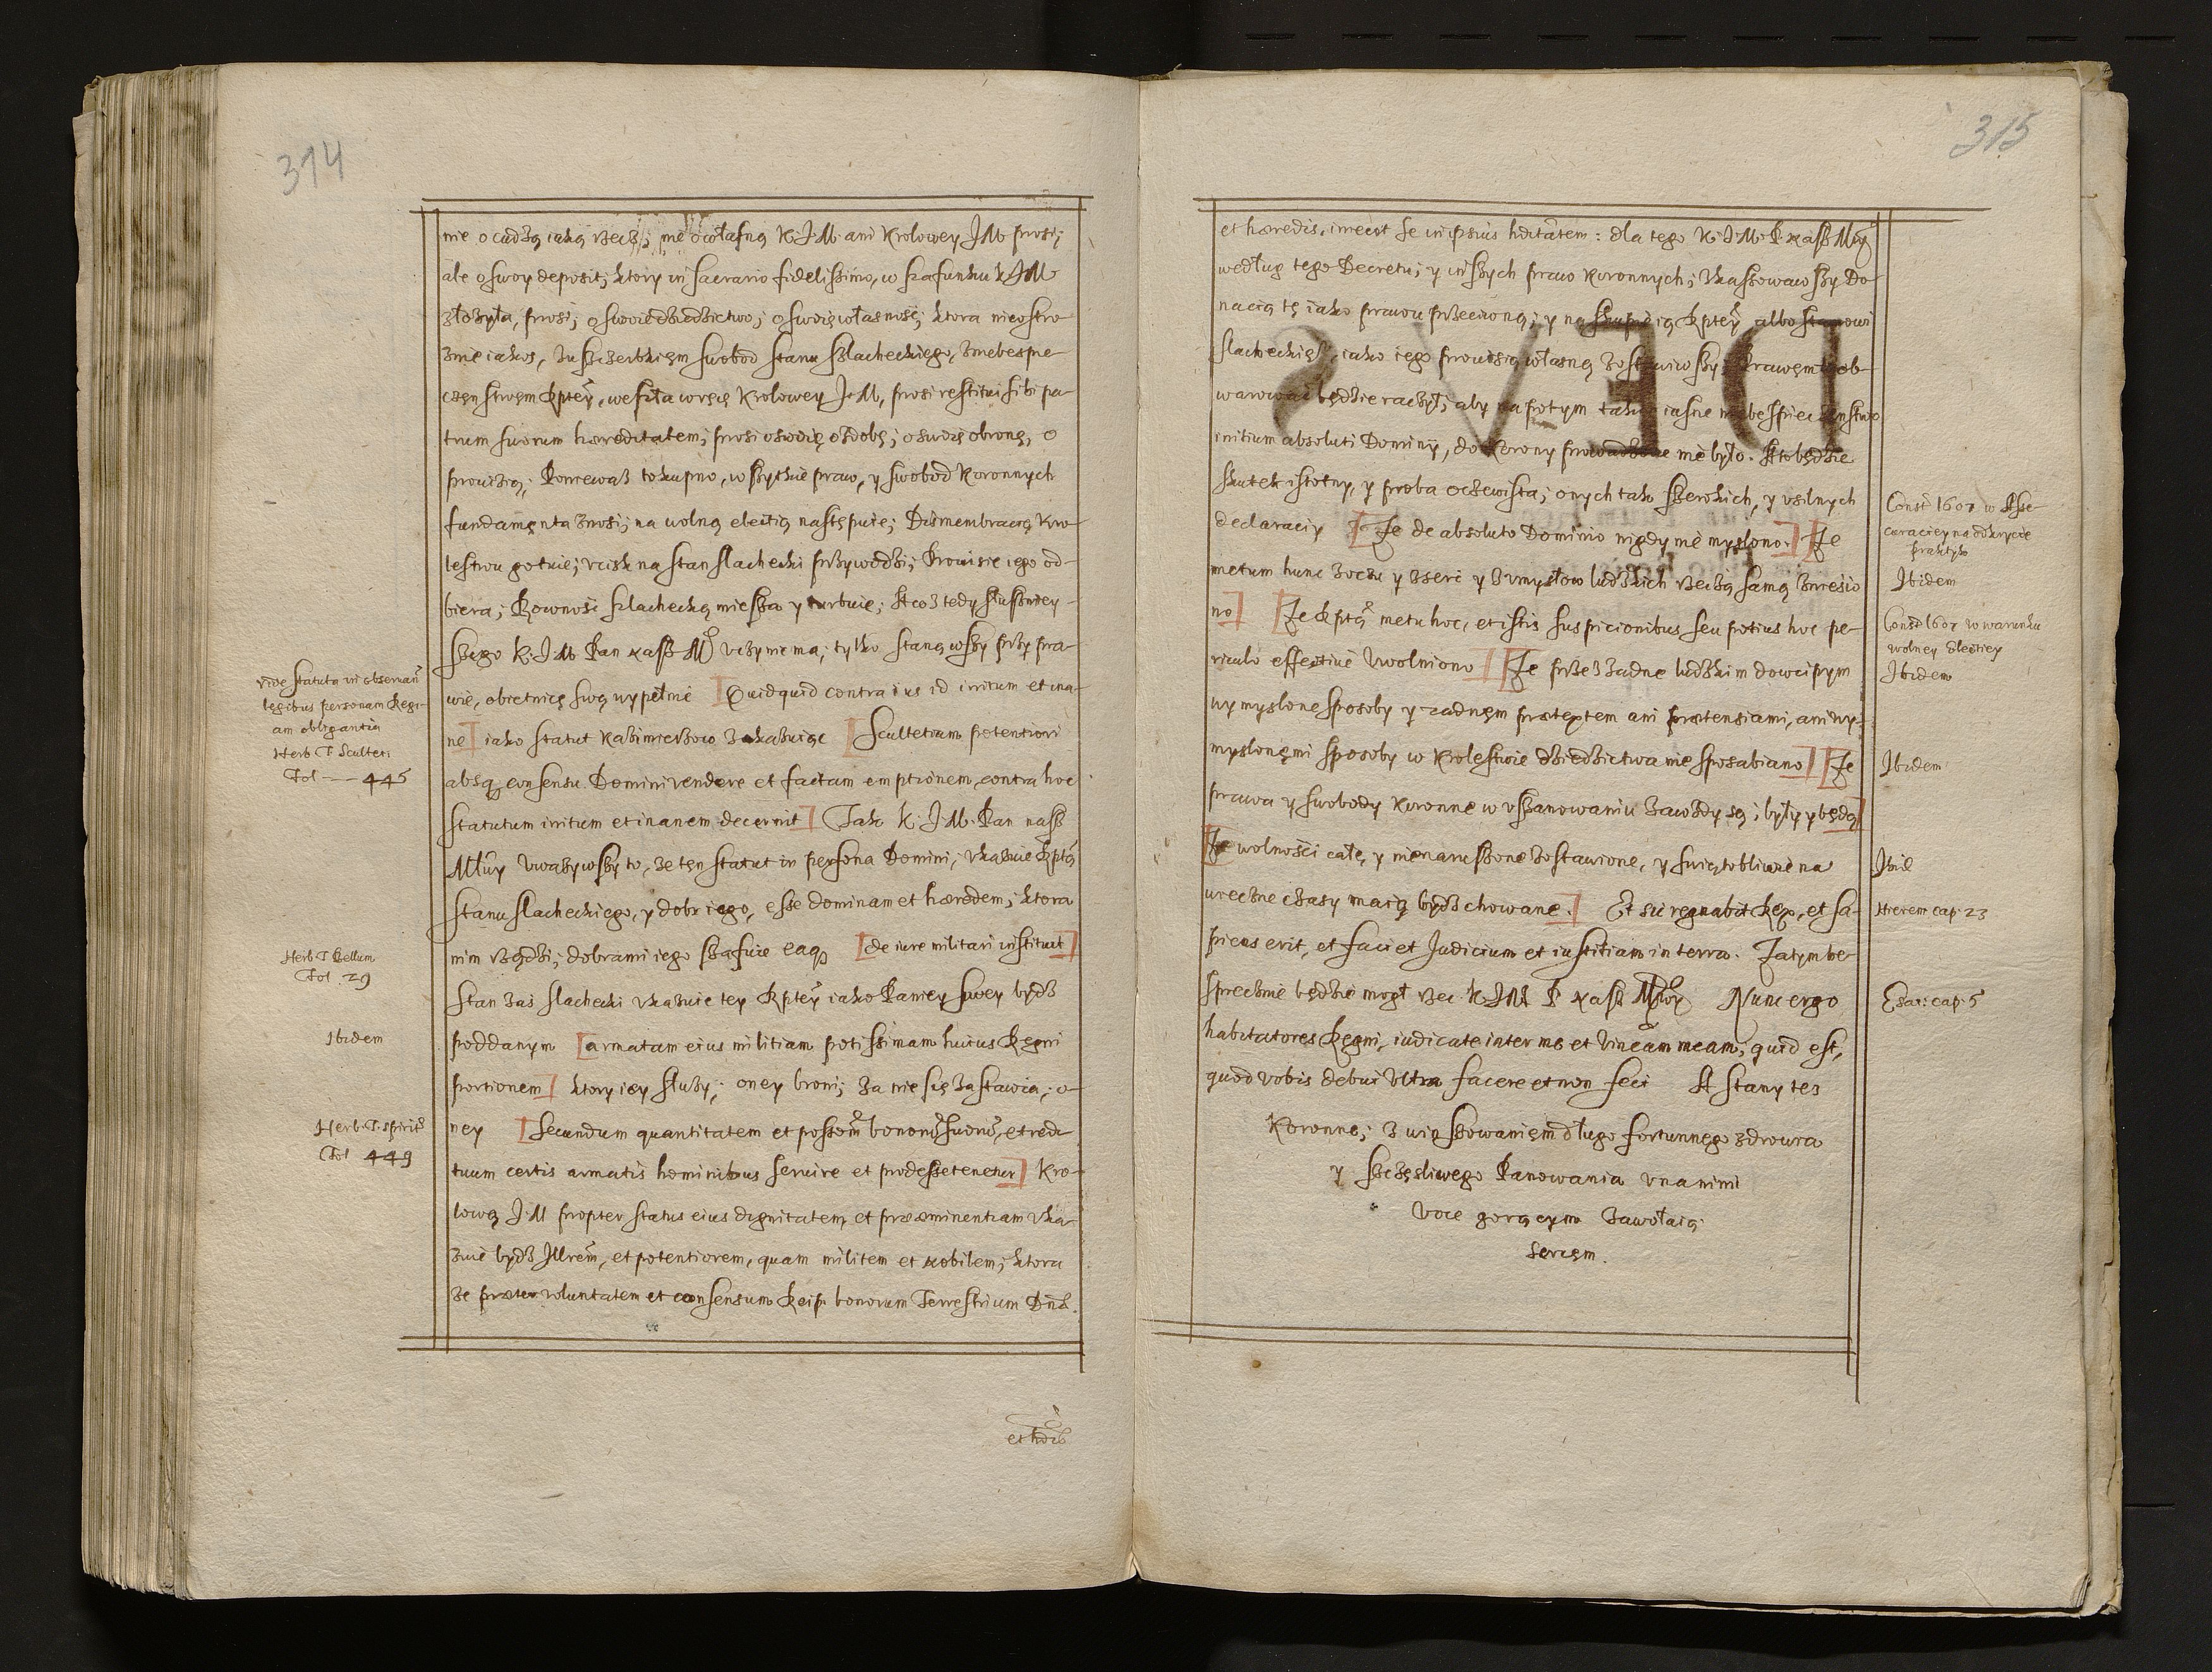 314
nie o cudzą iaką rzecz; nie o własną K.J.M. ani Krolowey JM prosi;
ale o swoy deposit; ktory in sacrario fidelissimo, w szafunku K JM
złożyła, prosi; o swoie dziedzictwo; o swoię własność; ktora nieostro-
żnie iakos, z uszczerbkięm swobod stanu szlacheckiego, z niebespie-
częnstwęm Rptey, weszła w ręię Krolowey J.M, prosi restitui sibi pa-
trum suorum hæreditatem; prosi o swoię ozdobę; o swoię obronę, o
prouizią; Poniewaz to kupno, wszytkie praw, y swobod Koronnych
fundamęnta znosi; na wolną electią następuie; Dismembracię Kro-
lestwu gotuie; vcisk na stan slachecki przywodzi; Prouisie iego od-
biera; Rowność szlachecką miesza y turbuie; A coz tedy słuszniey-
szego K. J M. Pan nasz M vczynic ma; tylko stanąwszy przy pra-
wie, obietnicę swą wypełni [Quidquid contra ius id irritum et ina-
ne] iako statut Kazimierzow zakazuiąc [Scultetiam potentiori
absq; consensu Domini vendere et factam emptionem contra hoc
statutum irritum et inanem decernit] Tak K. J. M. Pan nasz
Młwy vwazywszy to, ze tęn statut in persona Domini, vkazuie Rptą
stanu slacheckiego, y dobr iego, esse dominam et hæredem; ktora
nim rządzi; dobrami iego szafuie eaq [de iure militari instituit]
Stan zaś slachecki vkazuie tey Rptey iako Paniey swey bydz
poddanym [armatam eius militiam potissimam huius Regni
portionem] ktory iey słuzy; oney broni; za nie się zastawia; o-
ney [Secundum quantitatem et possem bonorum suorum, et redi-
tuum certis armatis hominibus seruire et prodesse tenetur] Kro-
lową J.M propter status eius dignitatem et præeminentiam vka-
zuie bydz Illrem, et potentiorem, quam militem et nobilem; ktora
ze præter voluntatem et consensum Reip. bonorum Terrestrium Dnæ.
et hdis
vide statuta in obseruan
legibus personam Regi-
am obligantia
Herb T Sculteti
Fol — 445
Herb T Bellum
Fol. 29
Ibidem
Herb. T. spirit
Fol 449
315
et hæredis, iniecit se in ipsius hditatem: dla tego K.J.M. P. nasz Mły
według tego Decretu; y inszych praw Koronnych; Skassowawszy Do-
nacią tę iako prawu przeciwną; y na skupie ią Rptey albo stanowi
slacheckię iako iego prouisią własną zostawiwszy; Prawęm to ob-
warować będzie raczył; aby na potym takie iasne niebespieczęnstwo
initium absoluti Dominij, do Korony prowadzone nie było. A to będzie
skutek istotny, y proba oczewista; onych tak szerokich, y vsilnych
declaraciy [Ze de absoluto Dominio nigdy nie myslono.] [Ze
metum hunc z oczu y z serc y z vmysłow ludzkich rzeczą samą zniesio
no] [Ze Rptą metu hoc, et istis suspicionibus seu potius hoc pe-
riculo effectiue vwolniono] [Ze przez zadne ludzkim dowcipym
wymyslone sposoby y zadnęm prætextem ani prætensiami, ani wy-
myslonęmi sposoby w Krolestwie dziedzictwa nie sposabiano] [Ze
prawa y swobody Koronne w vszanowaniu zawzdy są; były y będą]
[Ze wolności całe, y nienaruszone zostawione, y swiętobliwie na
wieczne czasy maią bydz chowane.] Et sic regnabit Rex, et sa-
piens erit, et faciet Judicium et iustitiam in terra. Zatym be-
spiecznie będzie mogł rzec K.JM P nasz Młwy Nunc ergo
habitatores Regni, iudicate inter me et Vineam meam; quid est,
quod vobis debui vltra facere et non feci A stany tez
Koronne; z winszowanięm długo fortunnego zdrowia
y szczęsliwego Panowania vnanimi
voce gorącym zawołaią
sercęm.
Const 1607 w Asse-
curaciey na odkrycie
praktyk
Ibidem
Const 1607 w warunku
wolney Electiey
Ibidem
Ibidem
Ibid
Hierem cap. 23
Esai: cap. 5